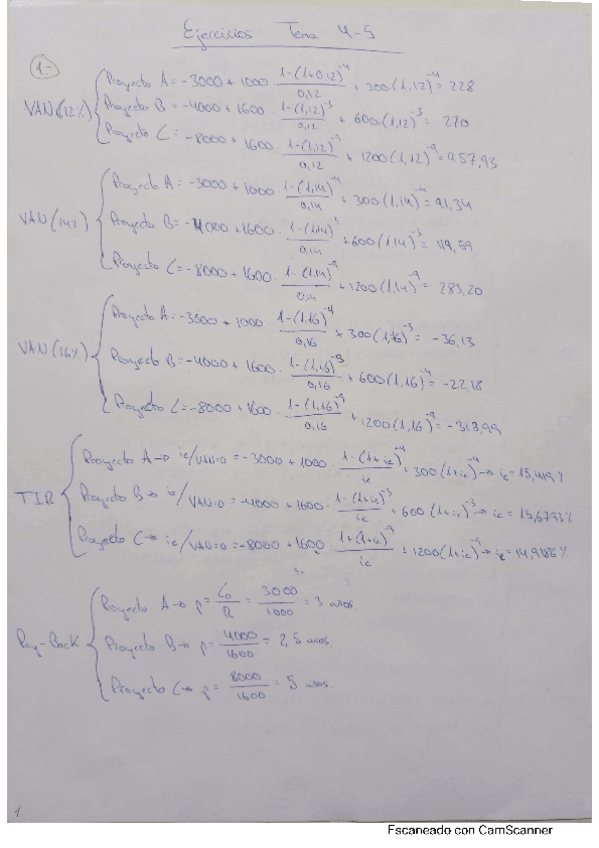 Ejercicios Tema 4-5
1.-
VAN(12%)
Proyecto A = -3000 + 1000 · 1-(1+0,12)^-4 / 0,12 + 300(1,12)^-4 = 228
Proyecto B = -4000 + 1600 · 1-(1,12)^-3 / 0,12 + 600(1,12)^-3 = 270
Proyecto C = -8000 + 1600 · 1-(1,12)^-9 / 0,12 + 1200(1,12)^-9 = 957,93
VAN(14%)
Proyecto A = -3000 + 1000 · 1-(1,14)^-4 / 0,14 + 300(1,14)^-4 = 91,34
Proyecto B = -4000 + 1600 · 1-(1,14)^-3 / 0,14 + 600(1,14)^-3 = 119,59
Proyecto C = -8000 + 1600 · 1-(1,14)^-9 / 0,14 + 1200(1,14)^-9 = 283,20
VAN(16%)
Proyecto A = -3000 + 1000 · 1-(1,16)^-4 / 0,16 + 300(1,16)^-3 = -36,13
Proyecto B = -4000 + 1600 · 1-(1,16)^-3 / 0,16 + 600(1,16)^-4 = -22,18
Proyecto C = -8000 + 1600 · 1-(1,16)^-9 / 0,16 + 1200(1,16)^-9 = -313,99
TIR
Proyecto A → ie/VAN=0 = -3000 + 1000 · 1-(1+ie)^-4 / ie + 300(1+ie)^-4 → ie = 15,419%
Proyecto B → ie/VAN=0 = -4000 + 1600 · 1-(1+ie)^-3 / ie + 600(1+ie)^-3 → ie = 15,6793%
Proyecto C → ie/VAN=0 = -8000 + 1600 1+(1+ie)^-9 / ie + 1200(1+ie)^-9 → ie = 14,9186%
Pay-Back
Proyecto A → p = C0/R = 3000/1000 = 3 años
Proyecto B → p = 4000/1600 = 2,5 años.
Proyecto C → p = 8000/1600 = 5 años.
1
Escaneado con CamScanner